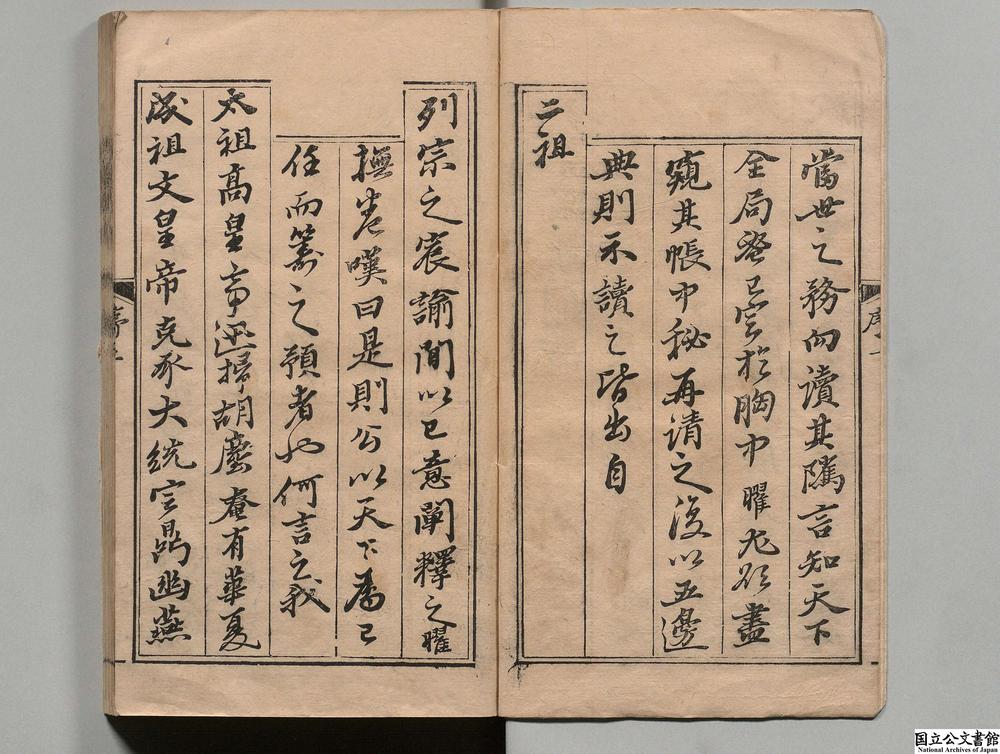 當世之務而讀其雋言知天下
全局登已定於胸中曜尤欲盡
窺其帳中秘再請之後以五邊
典則示讀之皆出自
二祖
列宗之宸諭間以己意闡釋之曜
撫卷嘆曰是則公以天下為己
任而籌之預者也何言之哉
太祖高皇帝迅掃胡塵奄有華夏
成祖文皇帝克承大統定鼎幽燕
序一
序二
国立公文書館
National Archives of Japan